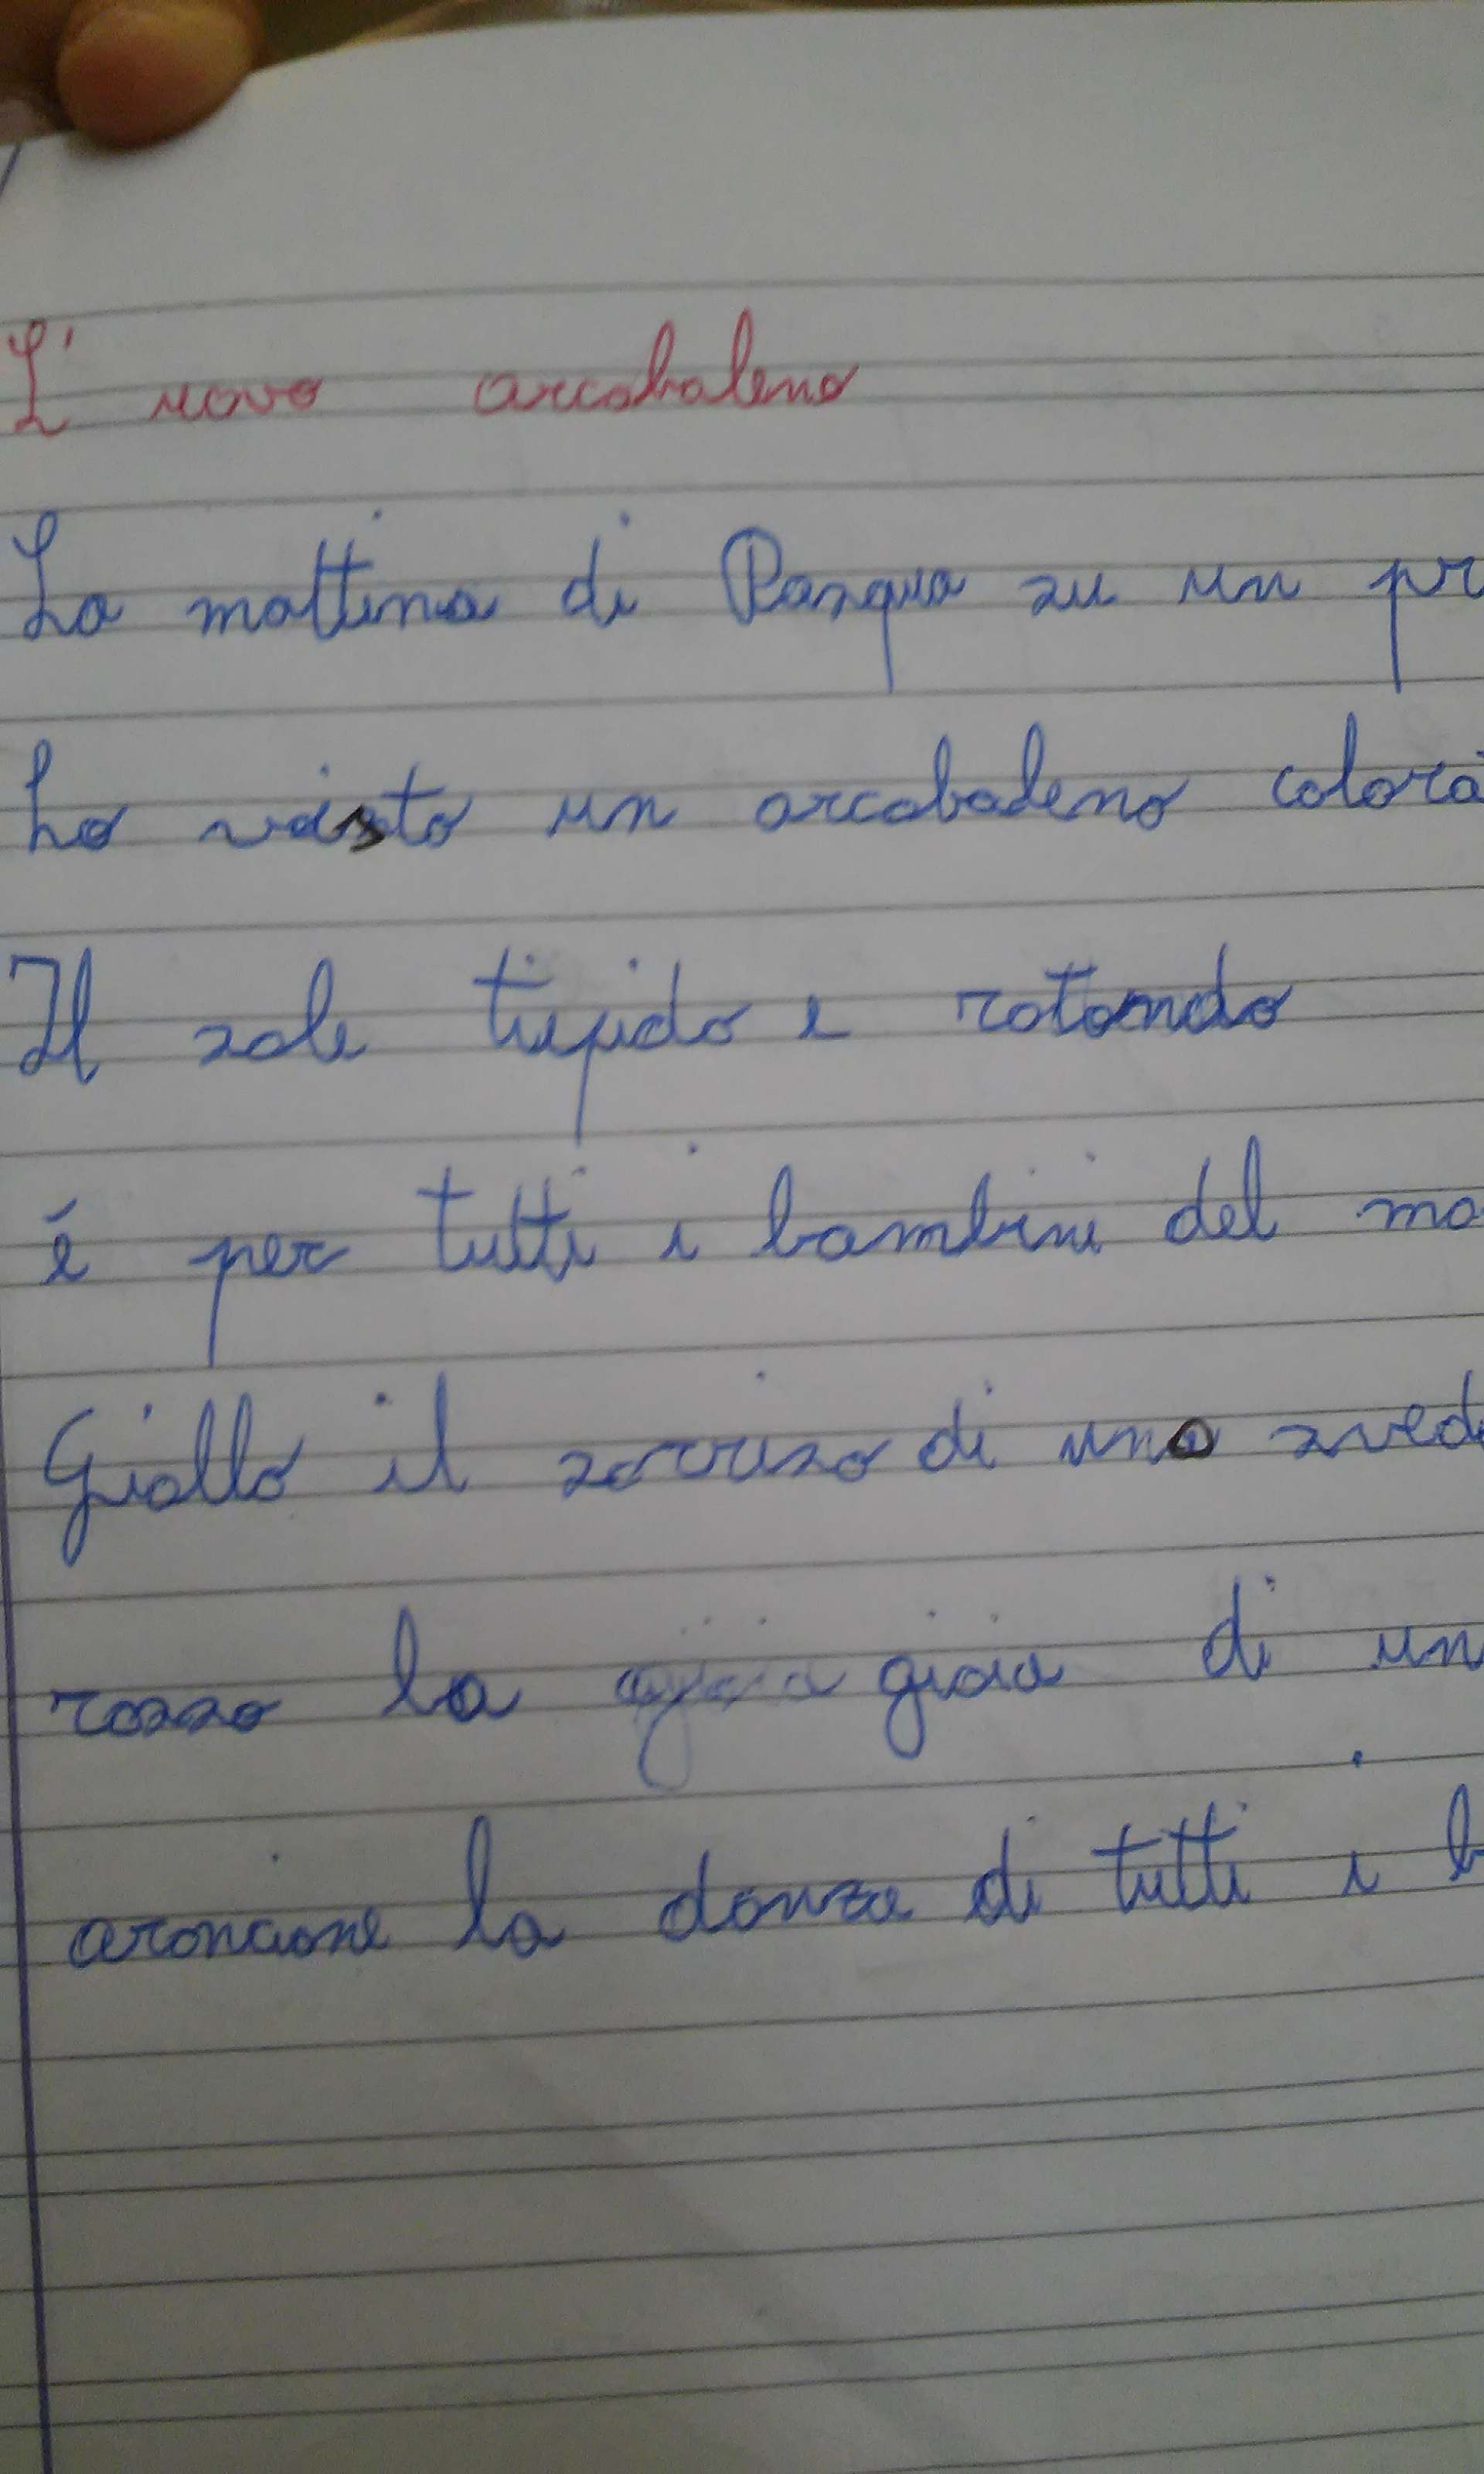 L' uovo arcobaleno
La mattina di Pasqua su un pr
ho visto un arcobaleno colora
Il sole tiepido e rotondo
é per tutti i bambini del mo
Giallo il sorriso di uno sved
rosso la gioia di un
arancione la danza di tutti i b